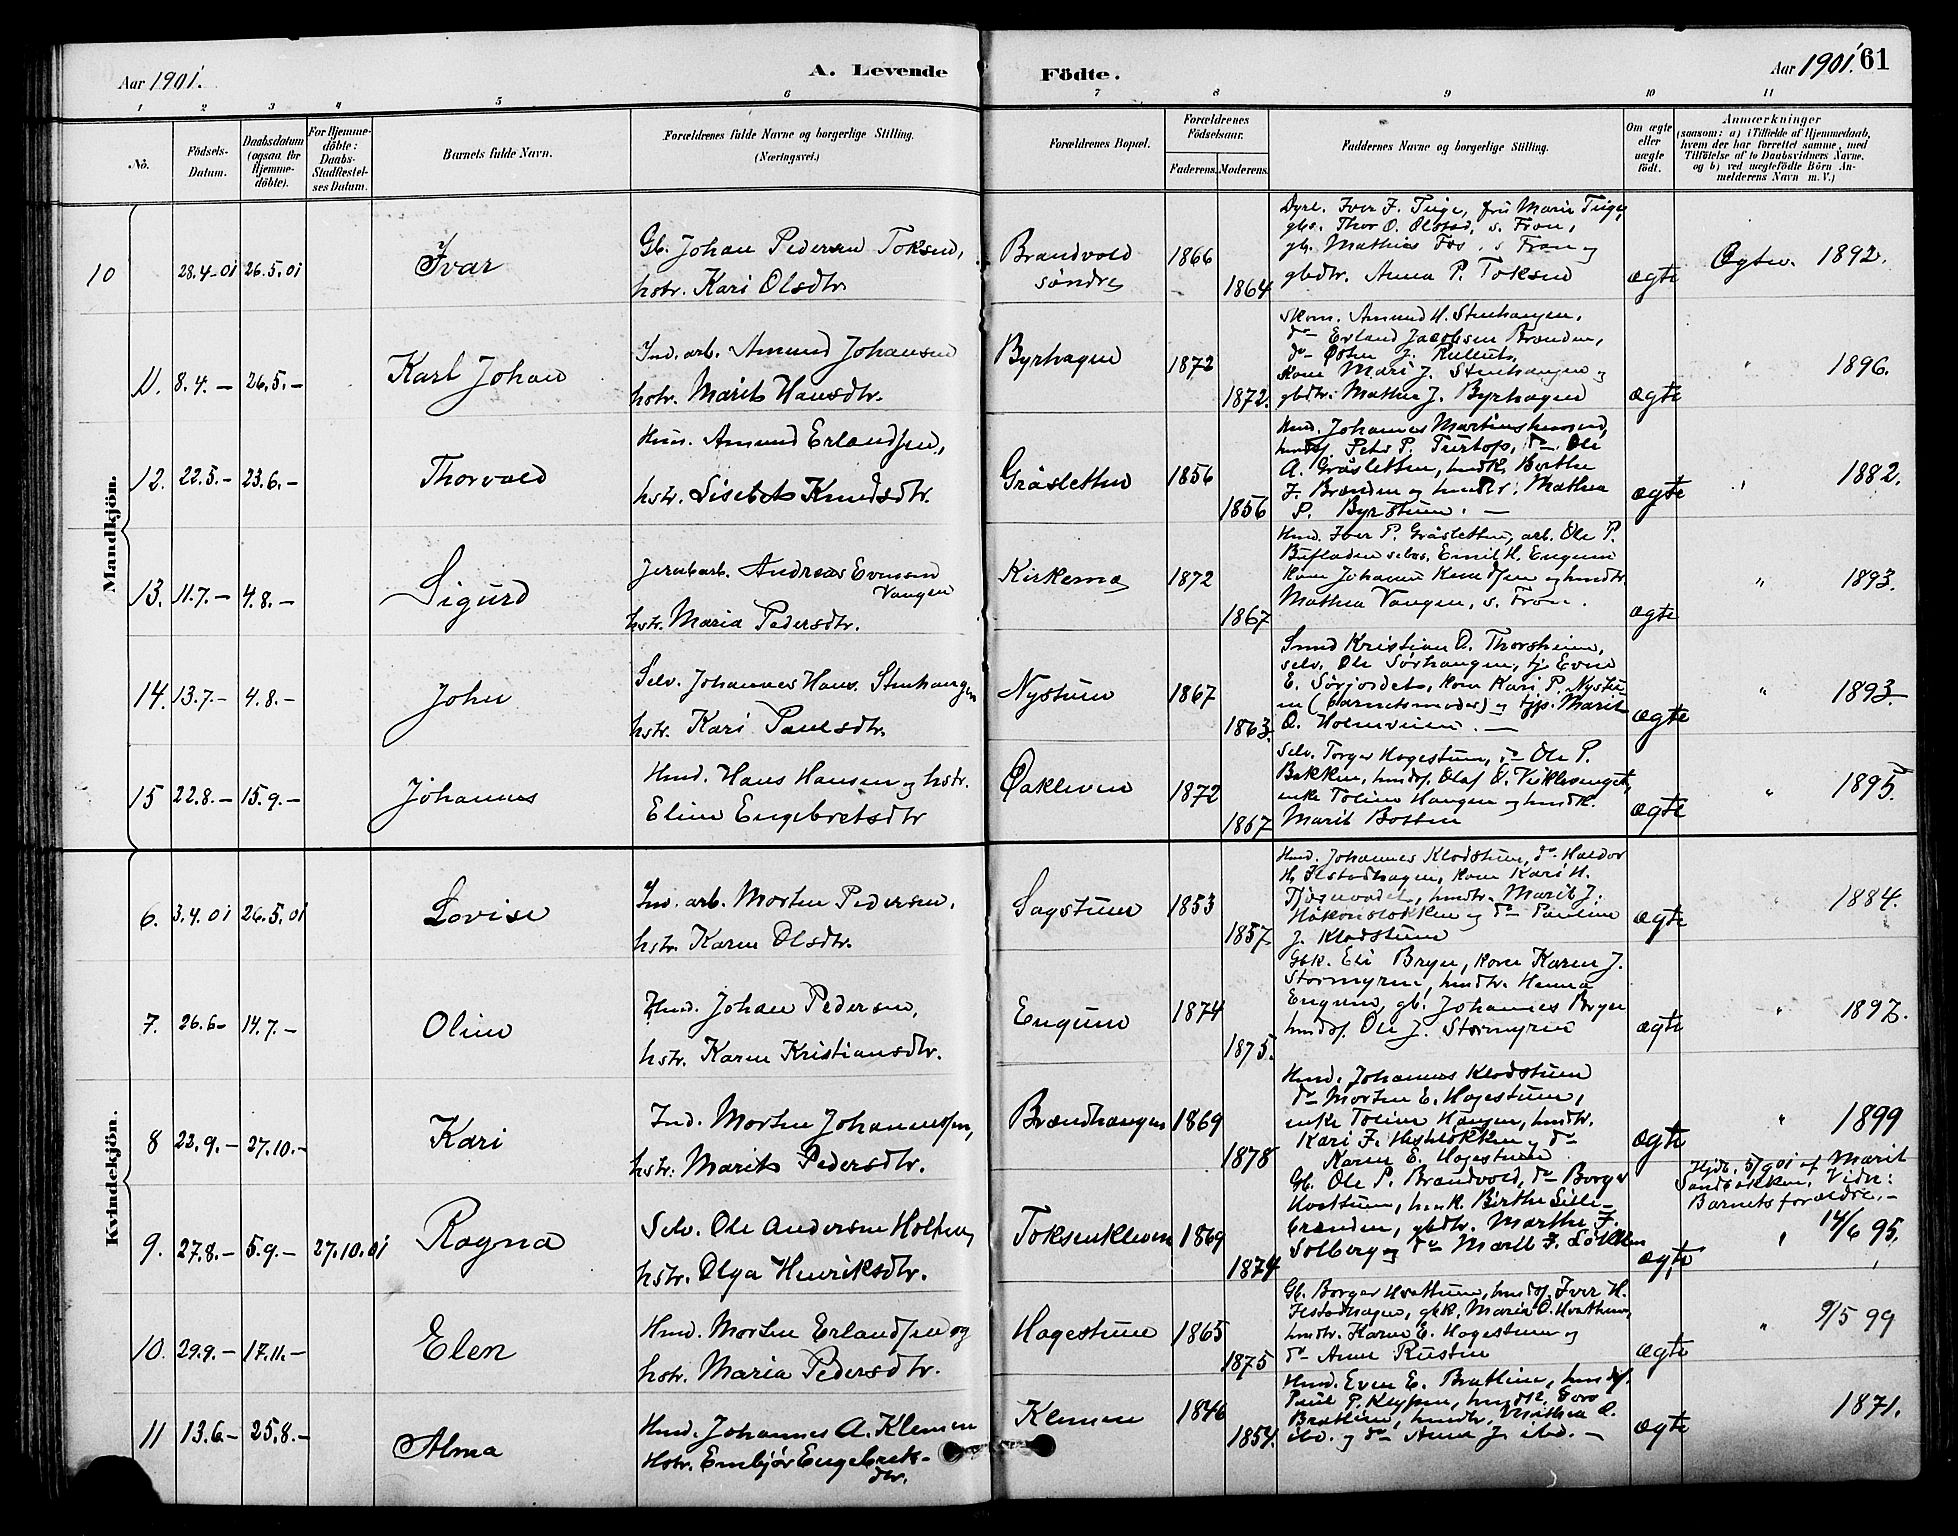 Aar 1901.
A. Levende Födte.
Aar 1901.
61
1 2 3 4 5 6 7 8 9 10 11
No.
Födsels-Datum.
Daabsdatum (ogsaa for Hjemme-döbte).
For Hjemme-döbte: Daabs-Stadfæstel-ses Datum.
Barnets fulde Navn.
Forældrenes fulde Navne og borgerlige Stilling.
(Næringsvei.)
Forældrenes Bopæl.
Forældrenes Födselsaar.
Faderens. Moderens.
Faddernes Navne og borgerlige Stilling.
Om ægte eller uægte födt.
Anmærkninger
(saasom: a) i Tilfælde af Hjemmedaab, hvem der har forrettet samme, med Tilföielse af to Daabsvidners Navne, og b) ved uægtefödte Börn An-melderens Navn m. V.)
Mandkjön.
10 28.4-01 26.5.01 Ivar
Gb. Johan Pedersen Toksen,
hstr. Kari Olsdtr.
Brandvold
søndre
1866
1864
gbs. Thor O. Olstad, s. Fron,
gb. Mathias Fos, s. Fron og
gbdtr. Anna P. Toksen
ægte
Ægtev. 1892.
11. 8.4.- 26.5.- Karl Johan
Ind. arb. Amund Johansen
hstr. Marit Hansdtr.
Byrhagen
1872
1872.
Skom. Amund H. Stenhaugen,
do Erland Jacobsen Brænden,
kone Mari J. Stenhaugen og
gbdtr. Mathea J. Byrhagen
ægte
" 1896.
12. 22.5.- 23.6.- Thorvald
Hus. Amund Erlandsen,
hstr. Lisebet Knudsdtr.
Gråsletten
1856
1856
A. Gråsletten, husk. Berthe
J. Brænden og husdtr. Mathea
P. Byrstuen. -
ægte
" 1882.
13. 11.7.- 4.8.- Sigurd
Jernb.arb. Andreas Evensen
Vangen
hstr. Maria Pedersdtr.
Kirkemo
1872
1867
Hmd. Iver P. Gråsletten, arb. Ole P.
kone Johanne Knudsen og husdtr.
Mathea Vangen, s. Fron.
ægte
" 1893.
14. 13.7.- 4.8.- John
Selv. Johannes Hans. Stenhaugen
hstr. Kari Paulsdtr.
Nystuen
1867
1863.
Smed Kristian O. Thorsheim,
selv. Ole Sørhaugen, tj. Even
E. Sørjordet, kone Kari P. Nystu-
en (barnets moder) og tjp. Marit
O. Holmveien. -
ægte
" 1893-
15 22.8.- 15.9.- Johannes
Hmd. Hans Hansen og hstr.
Eline Engebretsdtr
Øakleven
1872
1867
Selv. Torger Hagestuen, do Ole P.
Bakken, husds. Olaf O. Veiklesenget,
enke Toline Haugen og husdtr.
Marit Botten
ægte
" 1895.
Kvindekjön.
6. 3.4.01 26.5.01 Lovise
Ind. arb. Morten Pedersen,
hstr. Karen Olsdtr.
Sagstuen
1853
1857
Hmd. Johannes Klodstuen, do Haldor
H. Ilstadhagen, kone Kari H.
husdtr. Marit J.
Håkonsløkken og do Pauline
J. Klodstuen
ægte
" 1884.
7. 26.6- 14.7.- Oline
Hmd. Johan Pedersen,
hstr. Karen Kristiansdtr.
Engum
1874
1875.
Gbk. Eli Bryn, kone Karen J.
Stormyren, husdtr. Hanna
Engum, gb. Johannes Bryn
husds. Ole J. Stormyren
ægte
" 1897.
8 22.9.- 27.10.- Kari
Ind. Morten Johannessen,
hstr. Marit Pedersdtr.
Brændhaugen
1869
1878
Hmd. Johannes Klodstuen
do Morten E. Hagestuen,
enke Toline Haugen, husdtr.
Karen E. Hagestuen
ægte
" 1899
9. 27.8.- 5.9.- 27.10.01 Ragna
Selv. Ole Andersen Holten,
hstr. Olga Henriksdtr.
Toksenkleven
1869
1874
Gb. Ole P. Brandvold, do Borger
Hvattum, husk. Birthe Lille-
brænden, gbdtr. Marthe J.
Solberg og do Marit J. Løkken
ægte
Hjdb. 5/9 01 af Marit
Sandbakken. Vidn:
Barnets forældre. -
" 14/6 95.
10. 29.9.- 17.11.- Elen
Hmd. Morten Erlandsen og
hstr. Maria Pedersdtr.
Hagestuen
1865
1875
Gb. Borger Hvattum, husds. Iver H.
Ilstadhagen, gbk. Maria O. Hvattum,
husdtr. Karen E. Hagestuen og
do Anne Rusten
ægte
" 9/5 99
11 13.6- 25.8.- Alma
Hmd. Johannes A. Klemen
Hstr. Embjør Engebrets-
dtr.
Klemen
1846
1854.
Hmd. Even E. Bratlien, husds.
Bratlien, husdtr. Mathea O.
ibd. og do Anne J. ibd. -
ægte
1871.